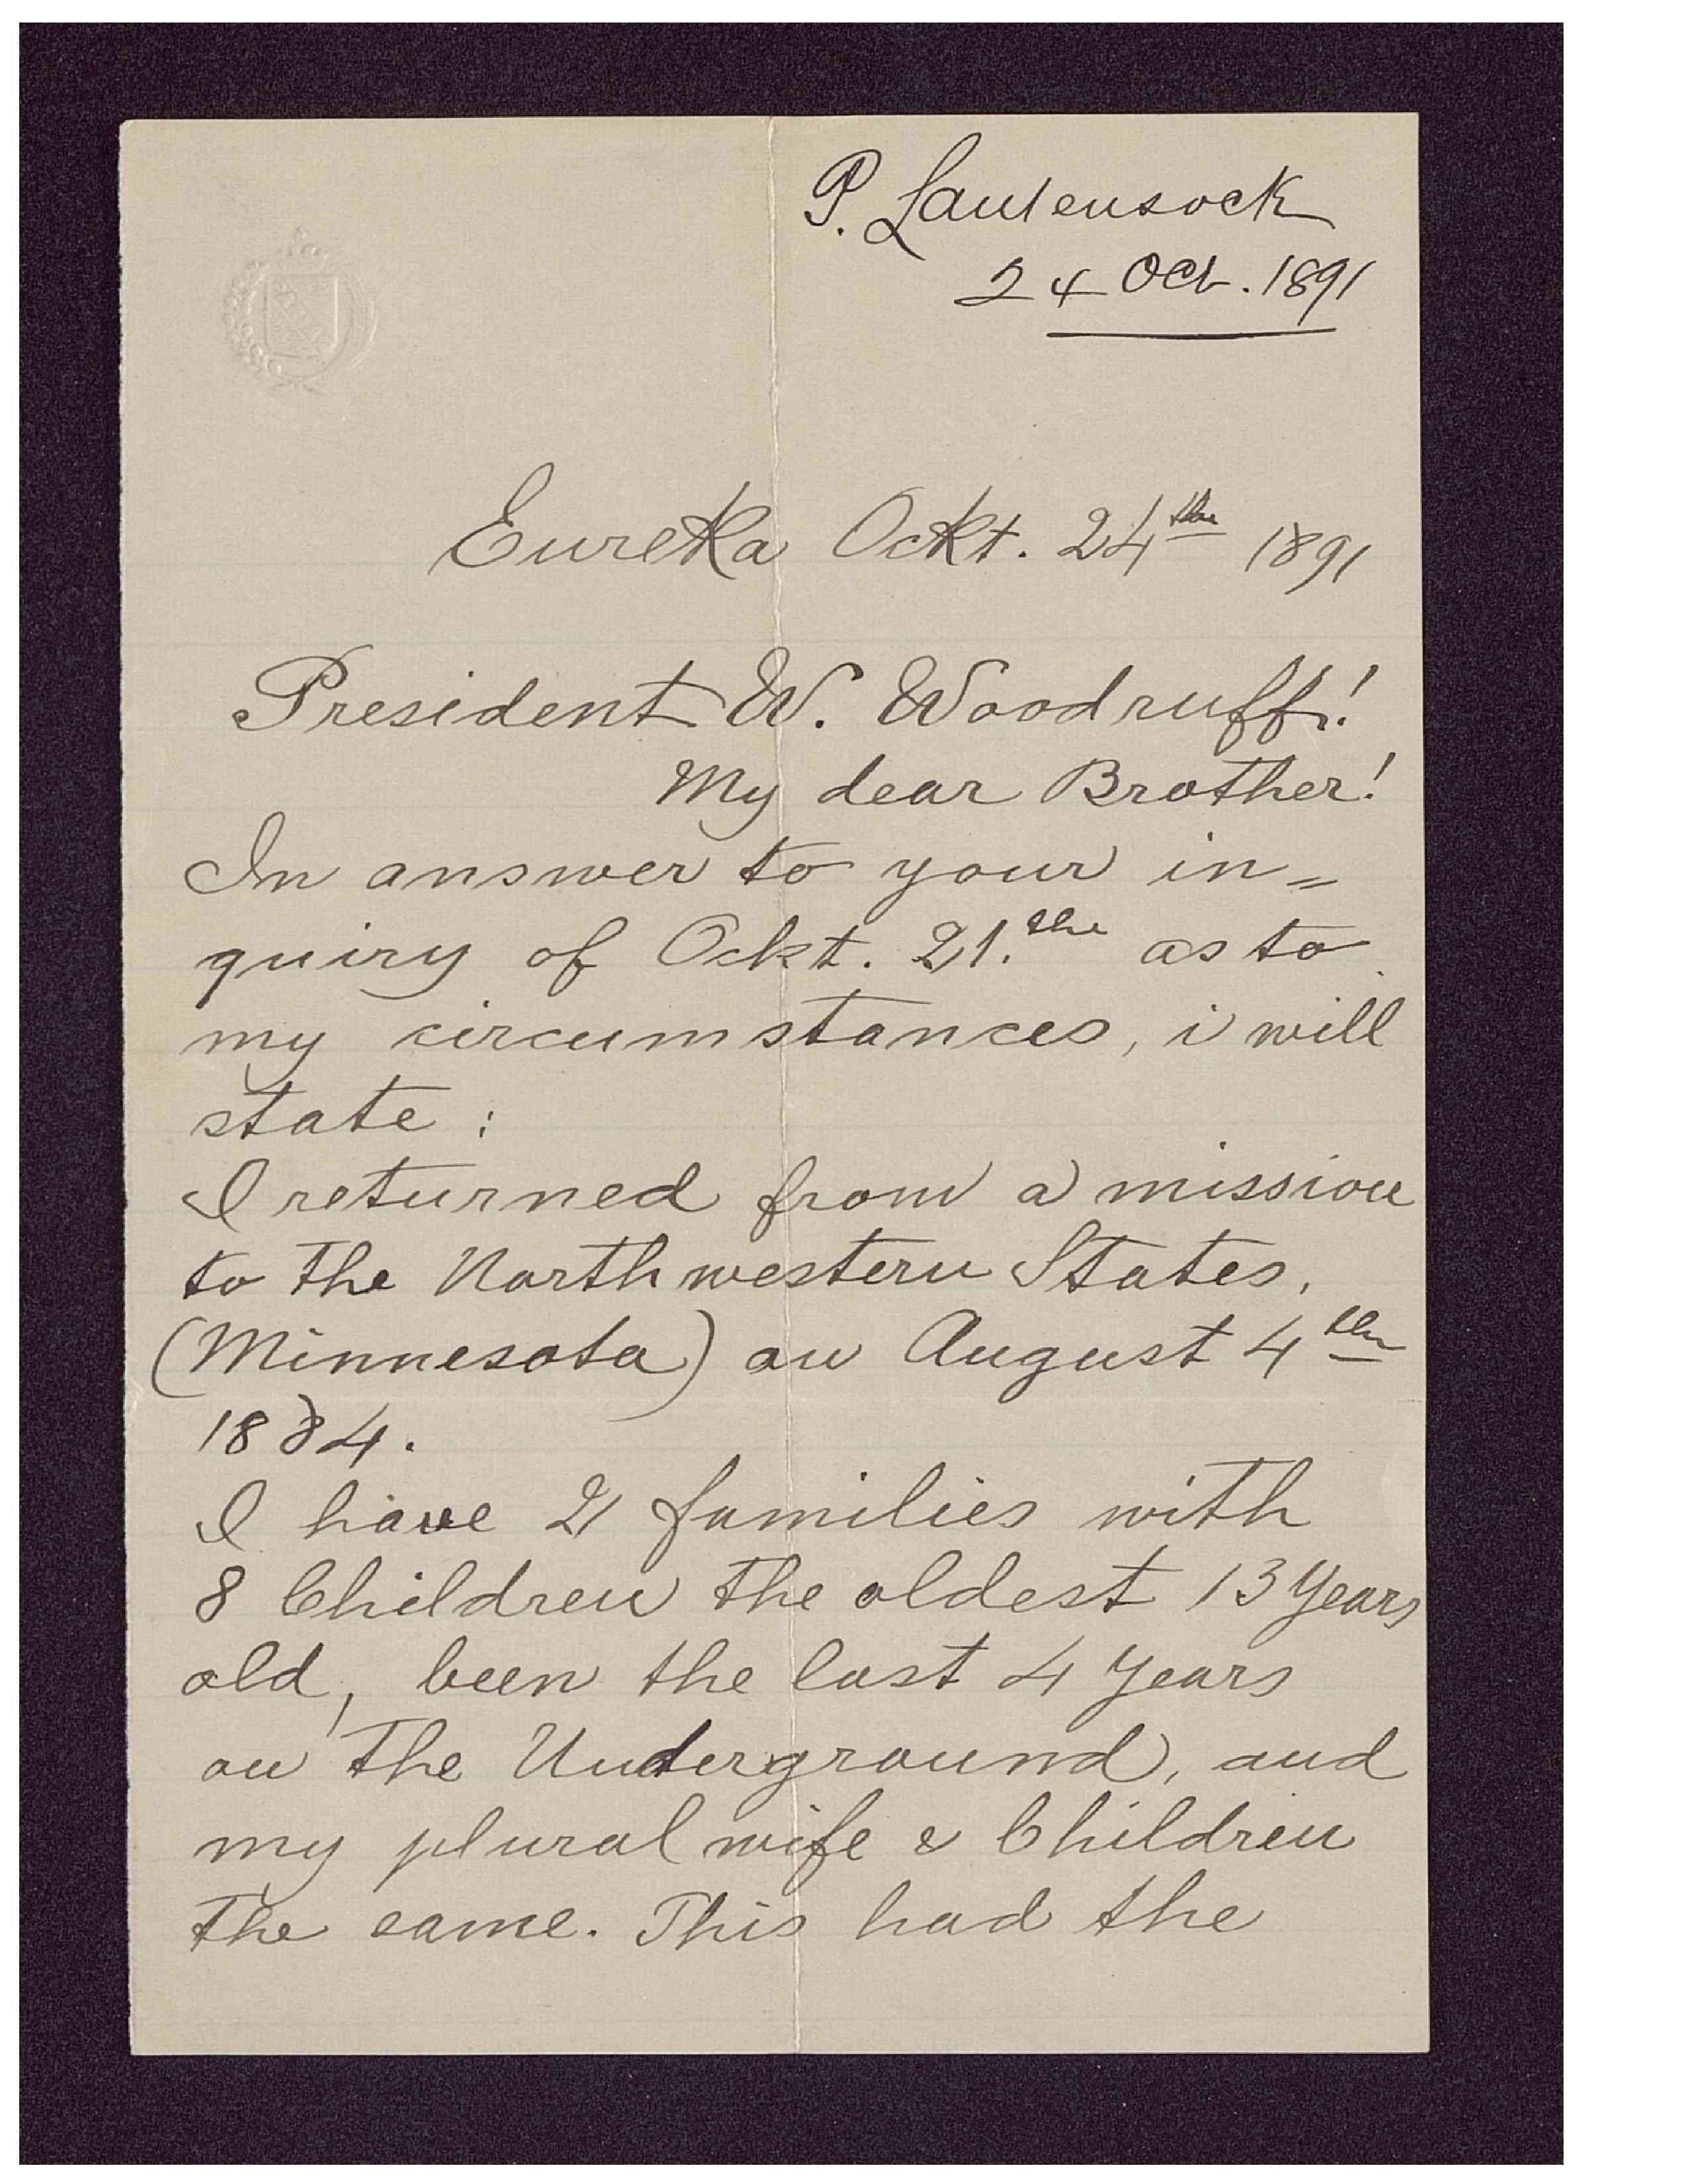 P. Lautensock
24 Oct. 1891
Eureka Ockt. 24th 1891
President W. Woodruff!
My dear Brother!
In answer to your in=
quiry of Ockt. 21.the as to
my circumstances, i will
state:
I returned from a mission
to the Northwestern States,
(Minnesota) on August 4th
1884.
I have 2 families with
8 Children the oldest 13 Years
old, been the last 4 Years
on the Underground, and
my plural wife & Children
the same. This had the